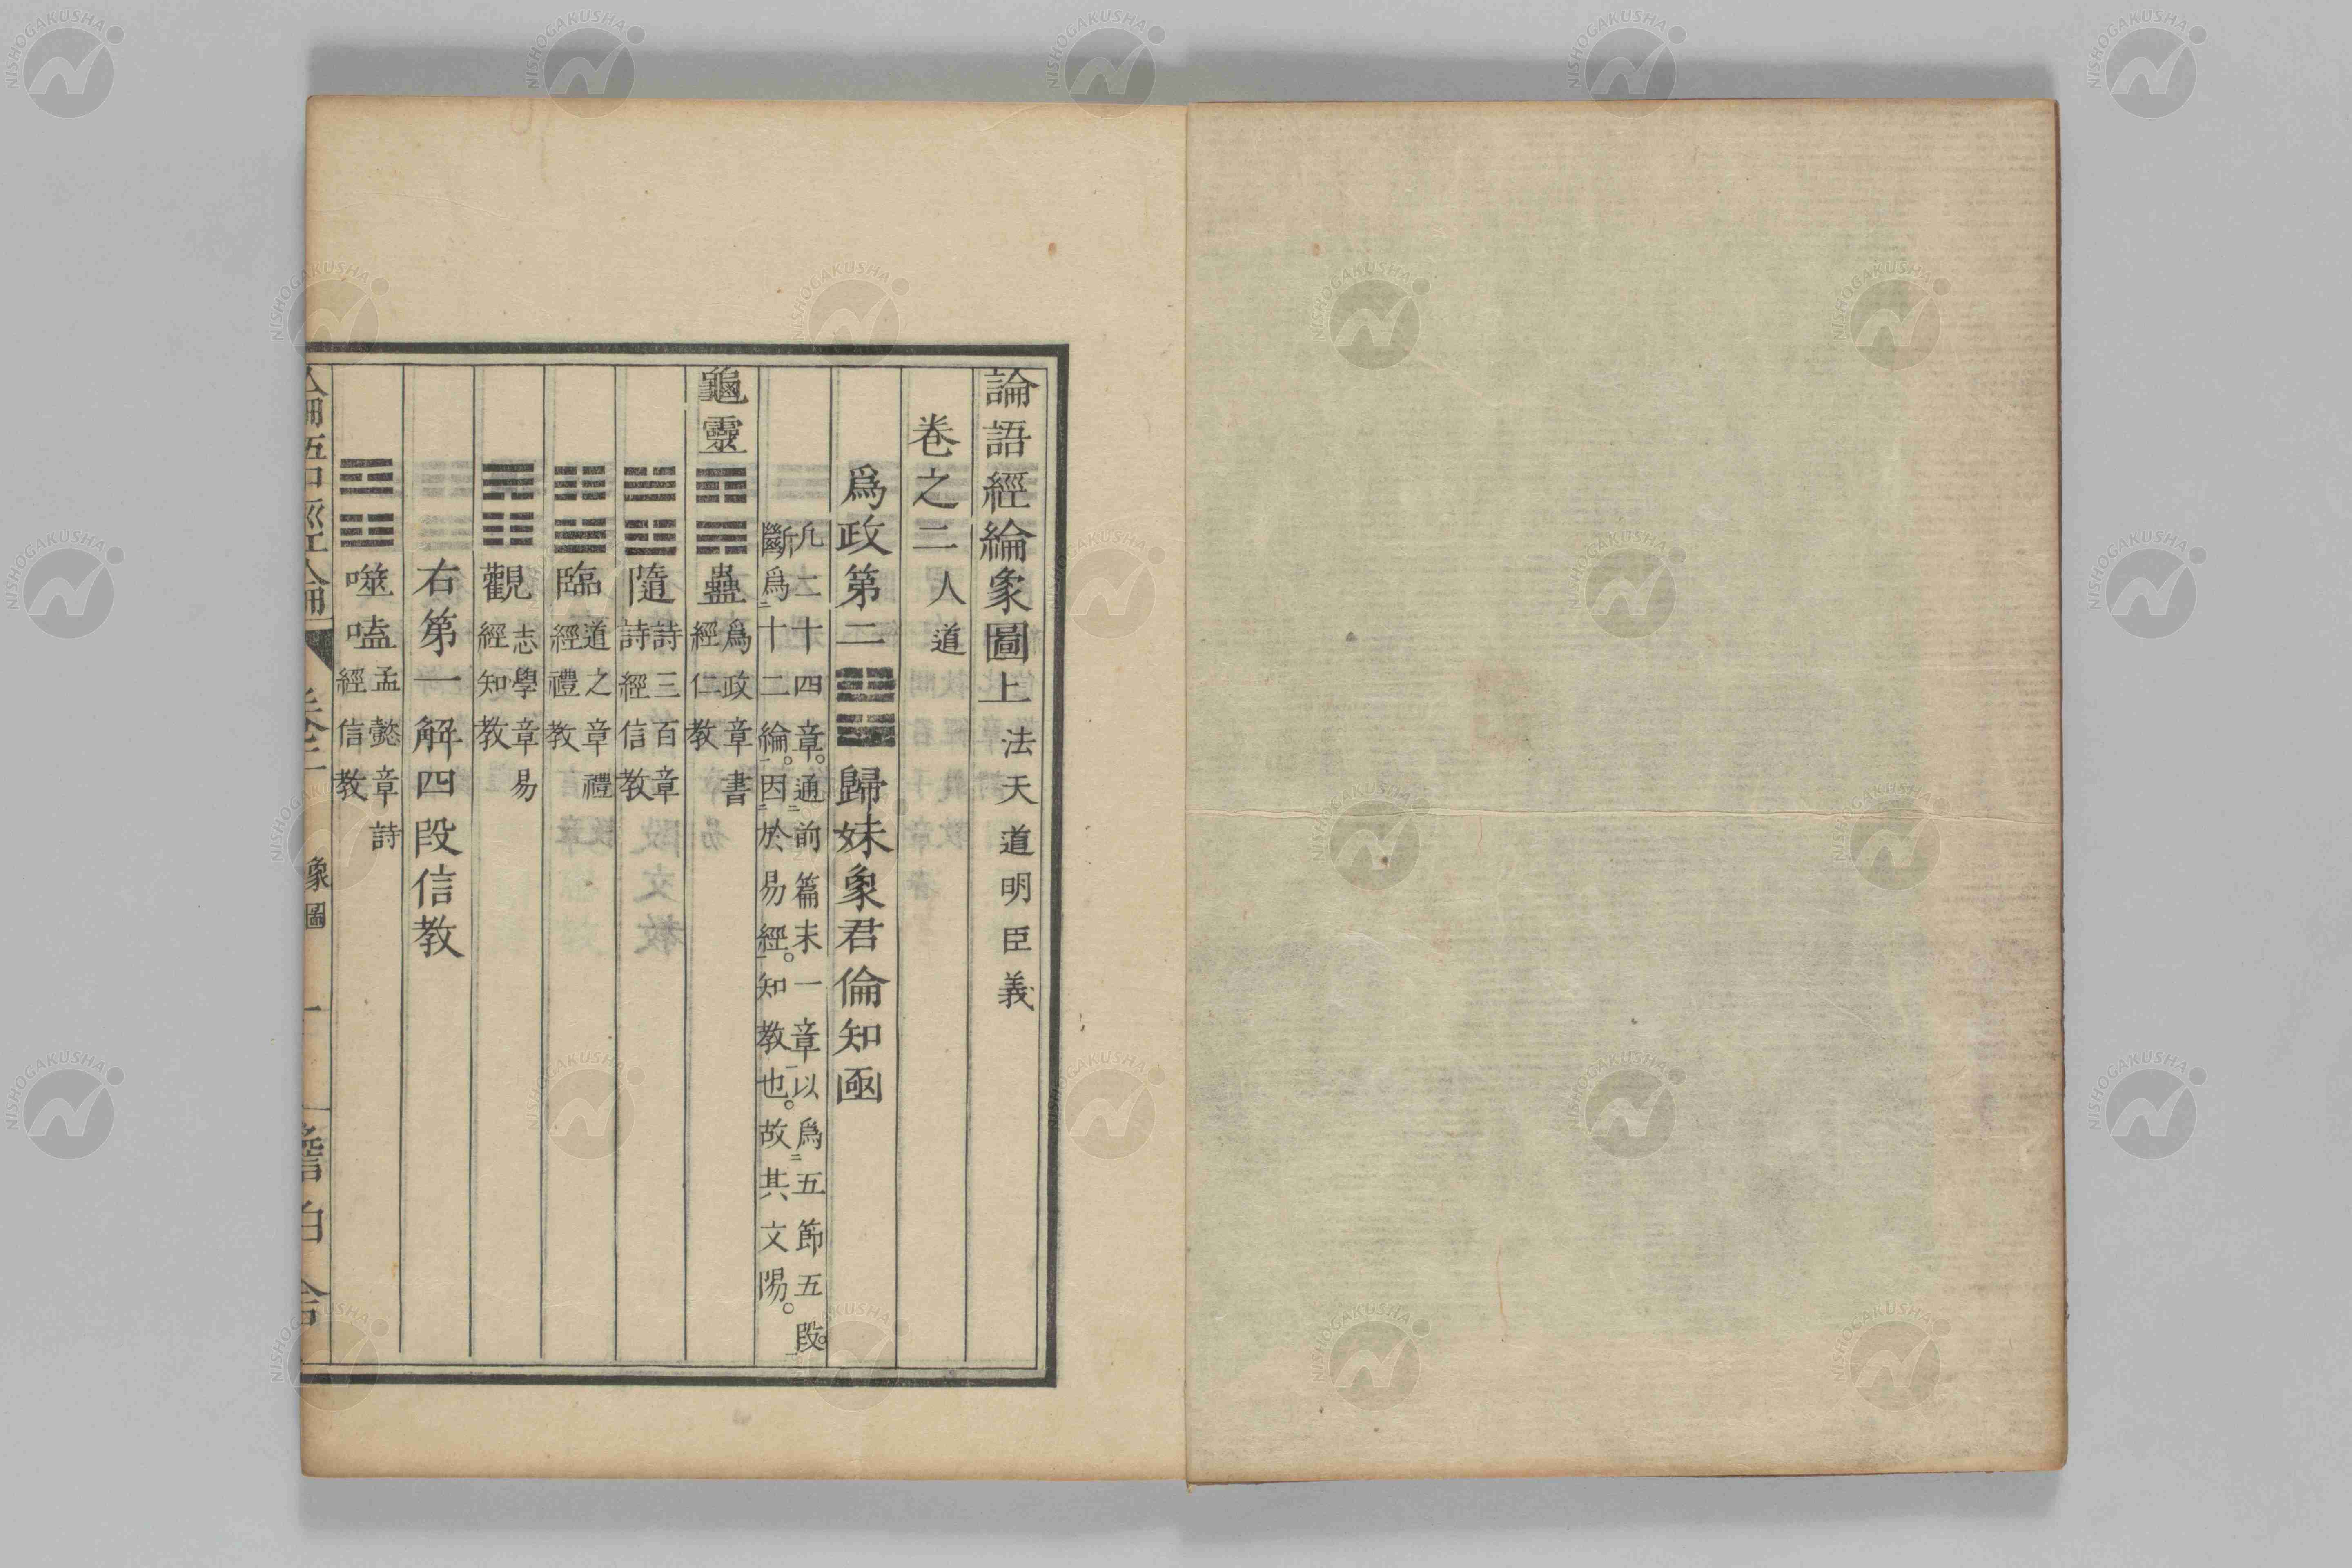 論語經綸象圖上 法天道明臣義
卷之二 人道
爲政第二 ䷵ 歸妹象君倫知圅
凡二十四章。通二前篇末一章一以爲二五節五段。一
斷爲二十二綸。一因二於易經。一知教也。故其文陽。
龜靈 ䷑ 蠱 爲政章書
經仁教
䷐ 隨 詩三百章
詩經信教
䷒ 臨 道之章禮
經禮教
䷓ 觀 志學章易
經知教
右第一解四段信教
䷔ 噬嗑 孟懿章詩
經信教
論語經綸 卷二 象圖 一
NISHOGAKUSHA